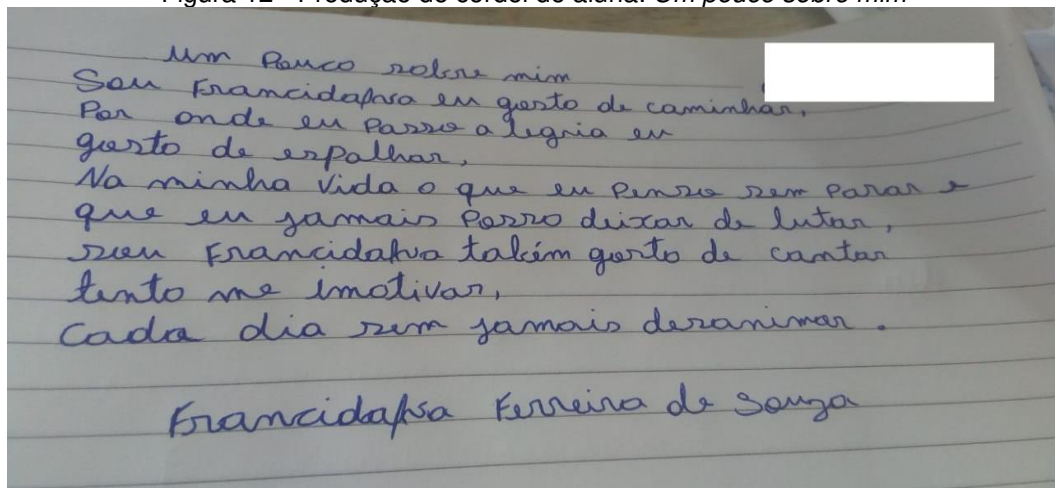 Figura 12 - Produção do cordel do aluna: Um pouco sobre mim
Um Pouco sobre mim
Sou Francidalva eu gosto de caminhar,
Por onde eu Passo a legria eu
gosto de espalhar,
Na minha vida o que eu Penso sem Parar e
que eu jamais Posso deixar de lutar,
sou Francidalva talém gosto de cantar
tento me imotivar,
Cada dia sem jamais desanimar.
Francidalva Ferreira de Souza